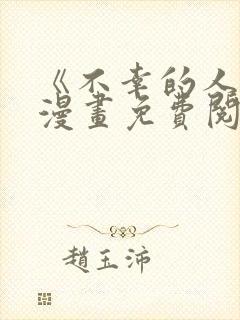 《不幸的人
漫畫免費閱
趙玉沛